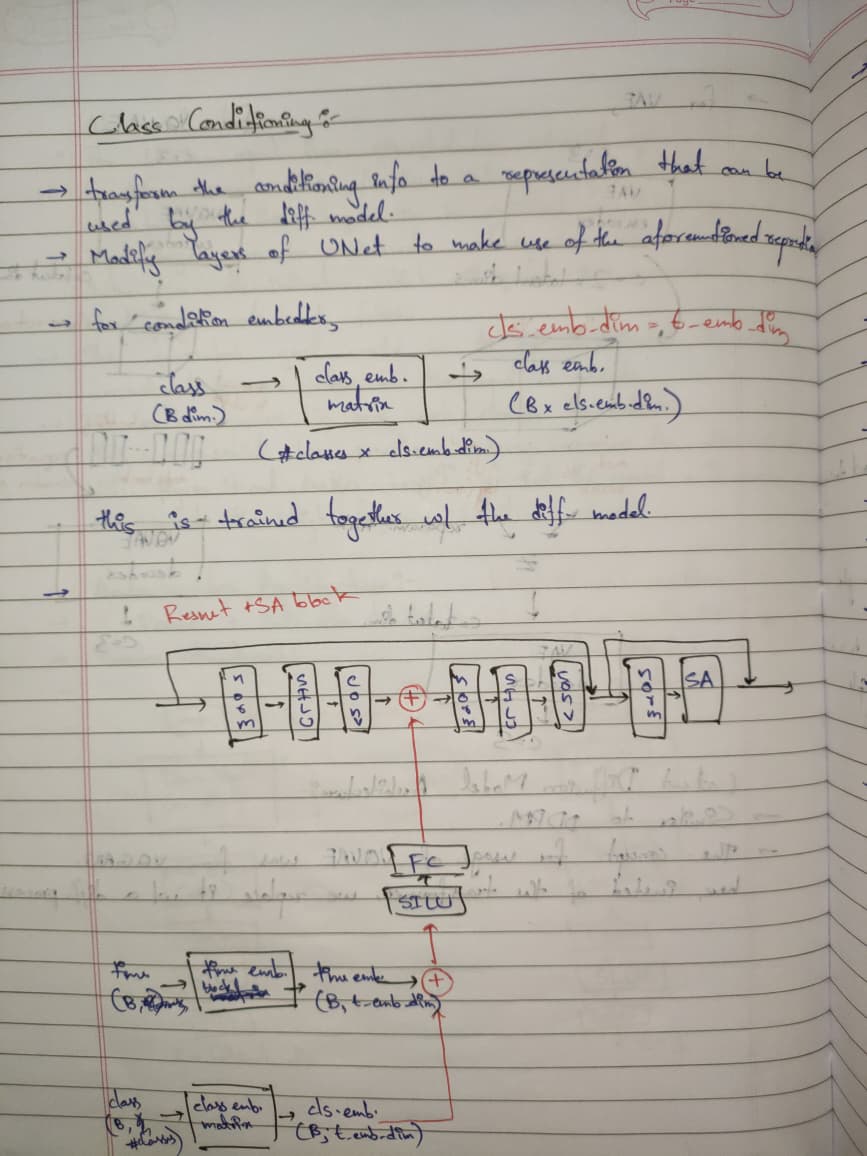 Class Conditioning :-
→ transform the conditioning info to a representation that can be
used by the diff. model.
→ Modify layers of UNet to make use of the aforementioned
→ for condition embedder,
cls_emb_dim = t_emb_dim
class → class emb. matrix → class emb.
(B dim.)
(B x cls.emb.dim.)
(#classes x cls.emb.dim.)
this is trained together w/ the diff. model.
→
Resnet + SA block
norm → SILU → conv → + → norm → SILU → conv → norm → SA
FC
SILU
time → time emb. block → time emb. → +
(B,
(B, t-emb-dim)
class → class emb. matrix → cls.emb.
(B,
#classes)
(B, t-emb-dim)